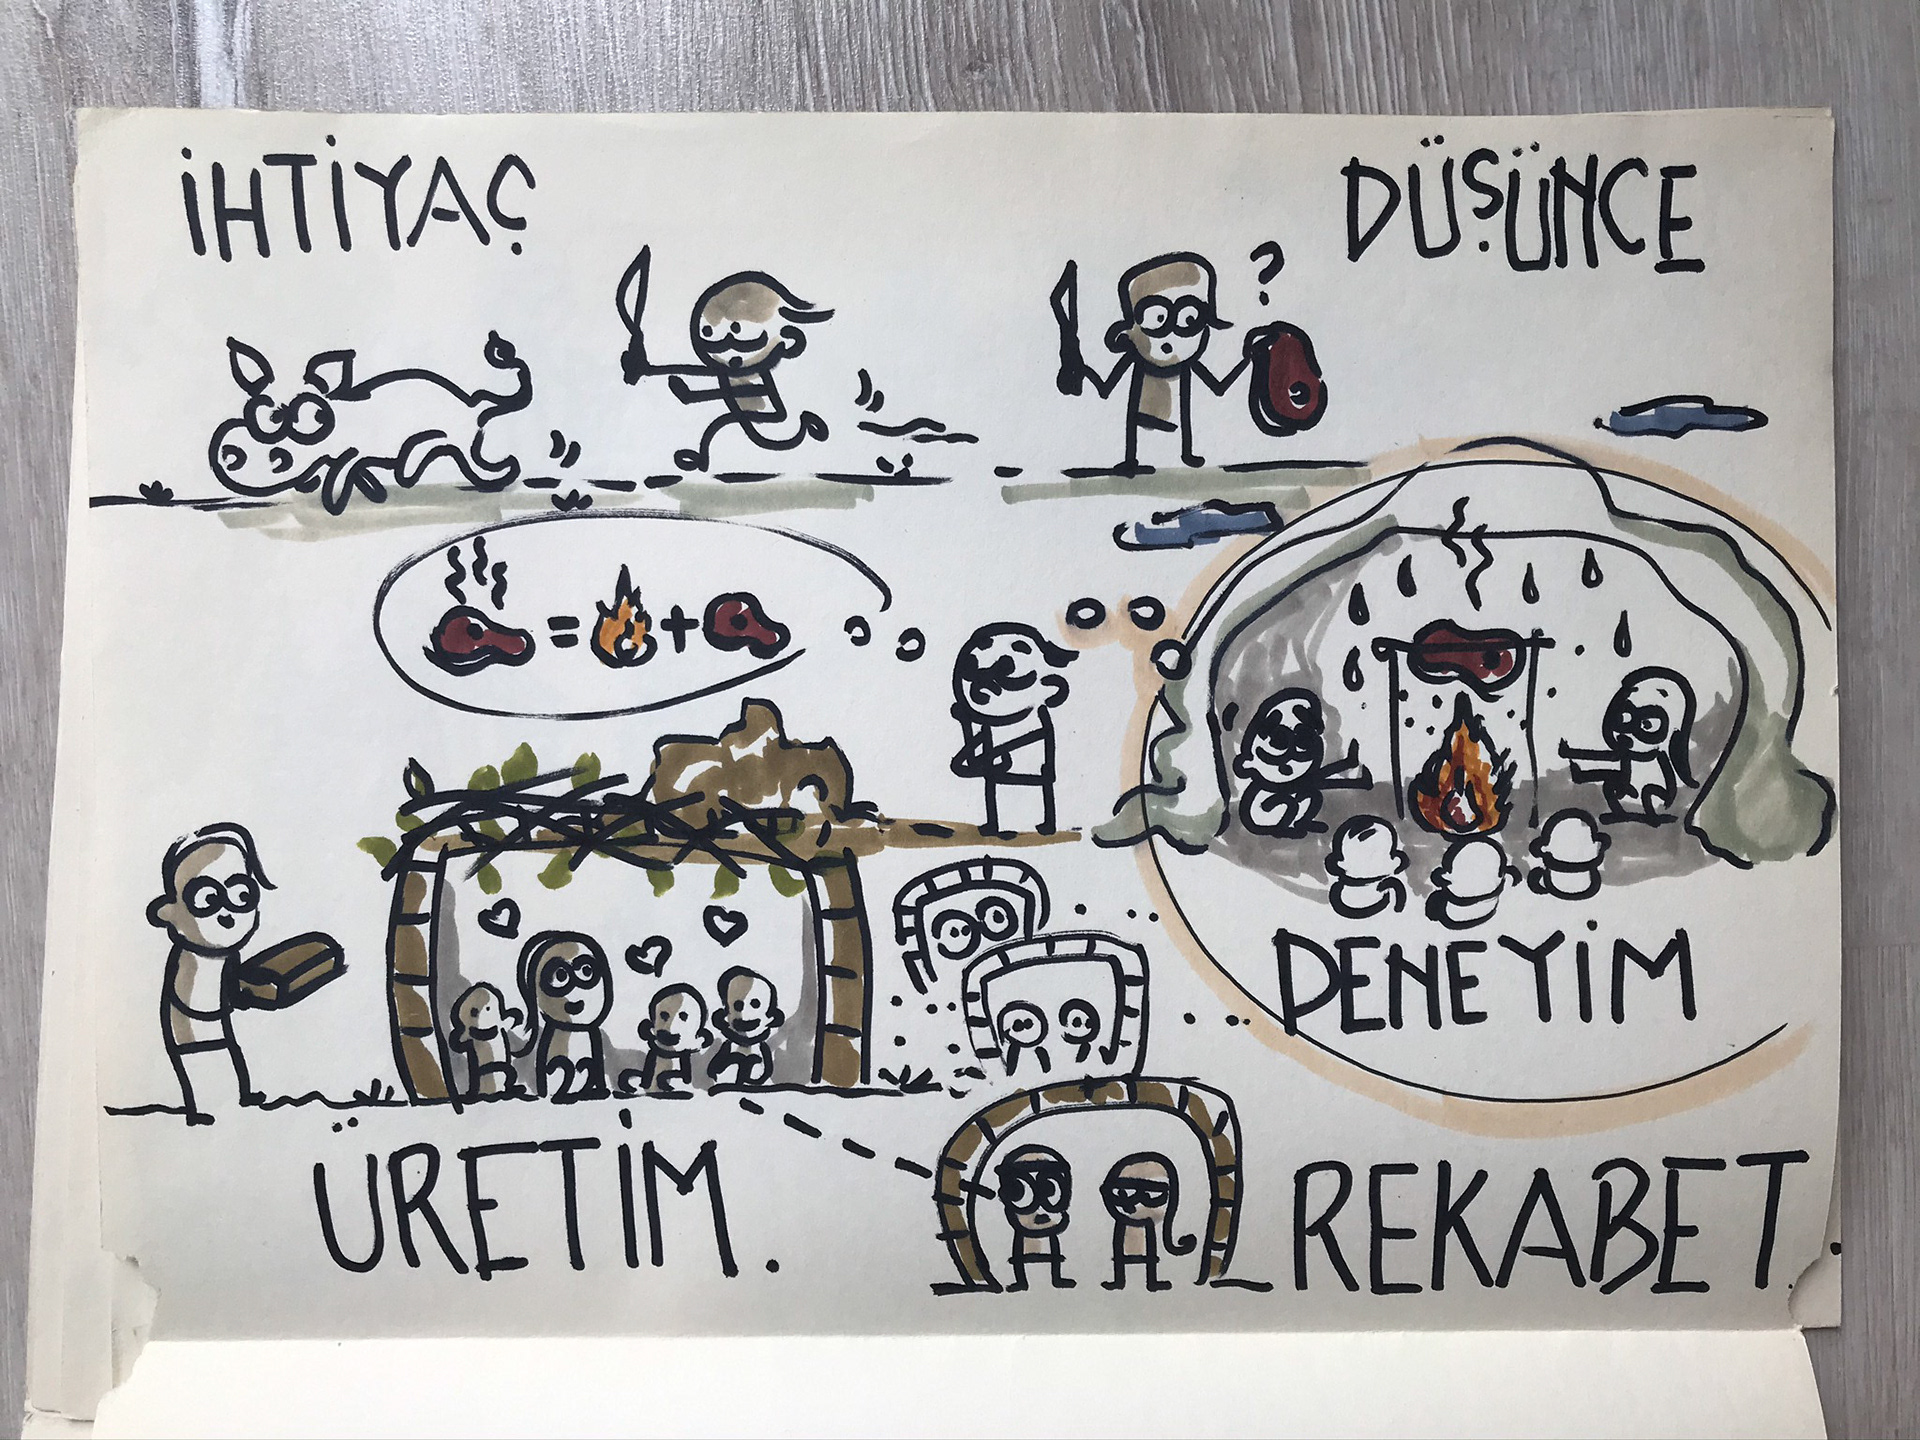 İHTİYAÇ
DÜŞÜNCE
?
= +
DENEYİM
ÜRETİM.
REKABET.